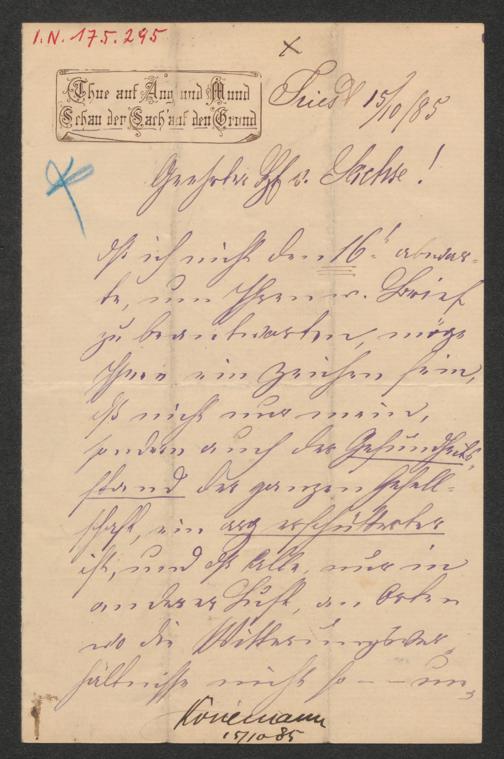 I.N. 175.295
Thue auf Aug und Mund
Schau der Sach' auf den Grund
Triest 15/10/85
Geehrter Hf v. Sachse!
dß ich nicht den 16t abwar-
te, um Ihren w. Brief
zu beantworten, möge
Ihnen ein Zeichen sein,
dß nicht nur mein,
sondern auch der Gesundheits-
stand der ganzen Gesell-
schaft, ein arg erschütterter
ist, und dß Alle, nur in
anderer Luft, an Orten
wo die Witterungsver-
hältnisse nicht so -- un-
Könemann
15/10 85